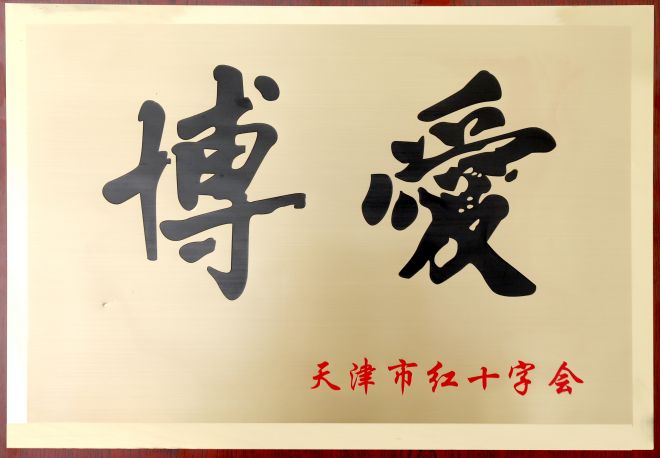 博愛
天津市红十字会